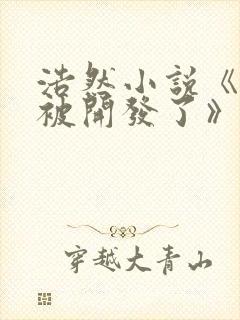 浩然小説《
被開發了》
穿越大青山